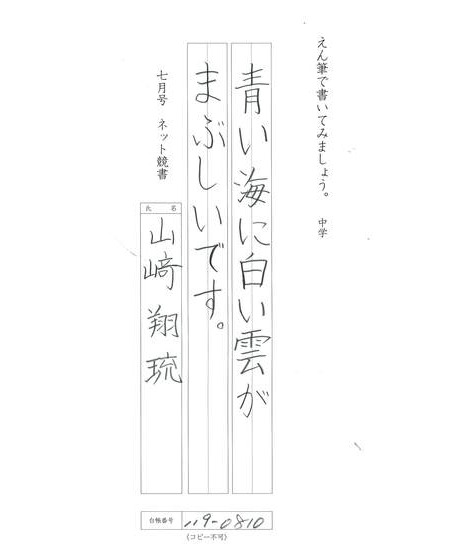 えん筆で書いてみましょう。 中学
青い海に白い雲が
まぶしいです。
七月号 ネット競書
氏名
山﨑 翔琉
台帳番号 119-0810
(コピー不可)